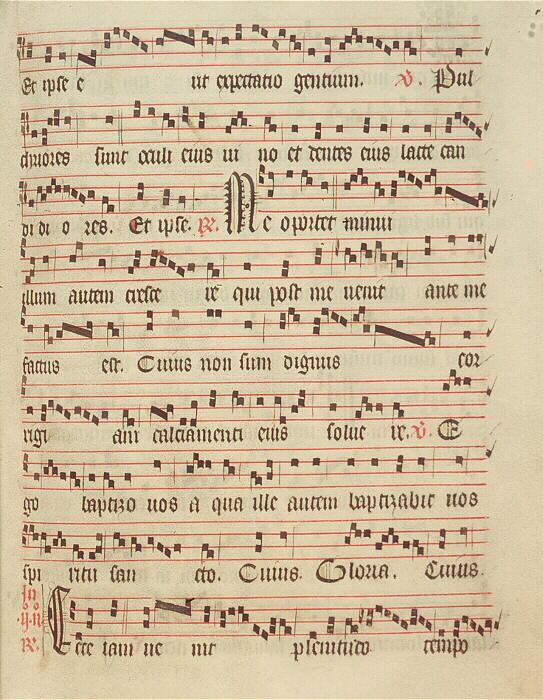 Et ipse e rit expectatio gentium. V. Pul
chriores sunt oculi eius ui no et dentes eius lacte can
di di o res. Et ipse. R. Me oportet minui
illum autem cresce re qui post me uenit ante me
factus est. Cuius non sum dignus cor
rigi am calciamenti eius solue re. V. E
go baptizo uos a qua ille autem baptizabit uos
spi ritu san cto. Cuius. Gloria. Cuius.
In .ij. N R. Ecce iam ue nit plenitudo tempo